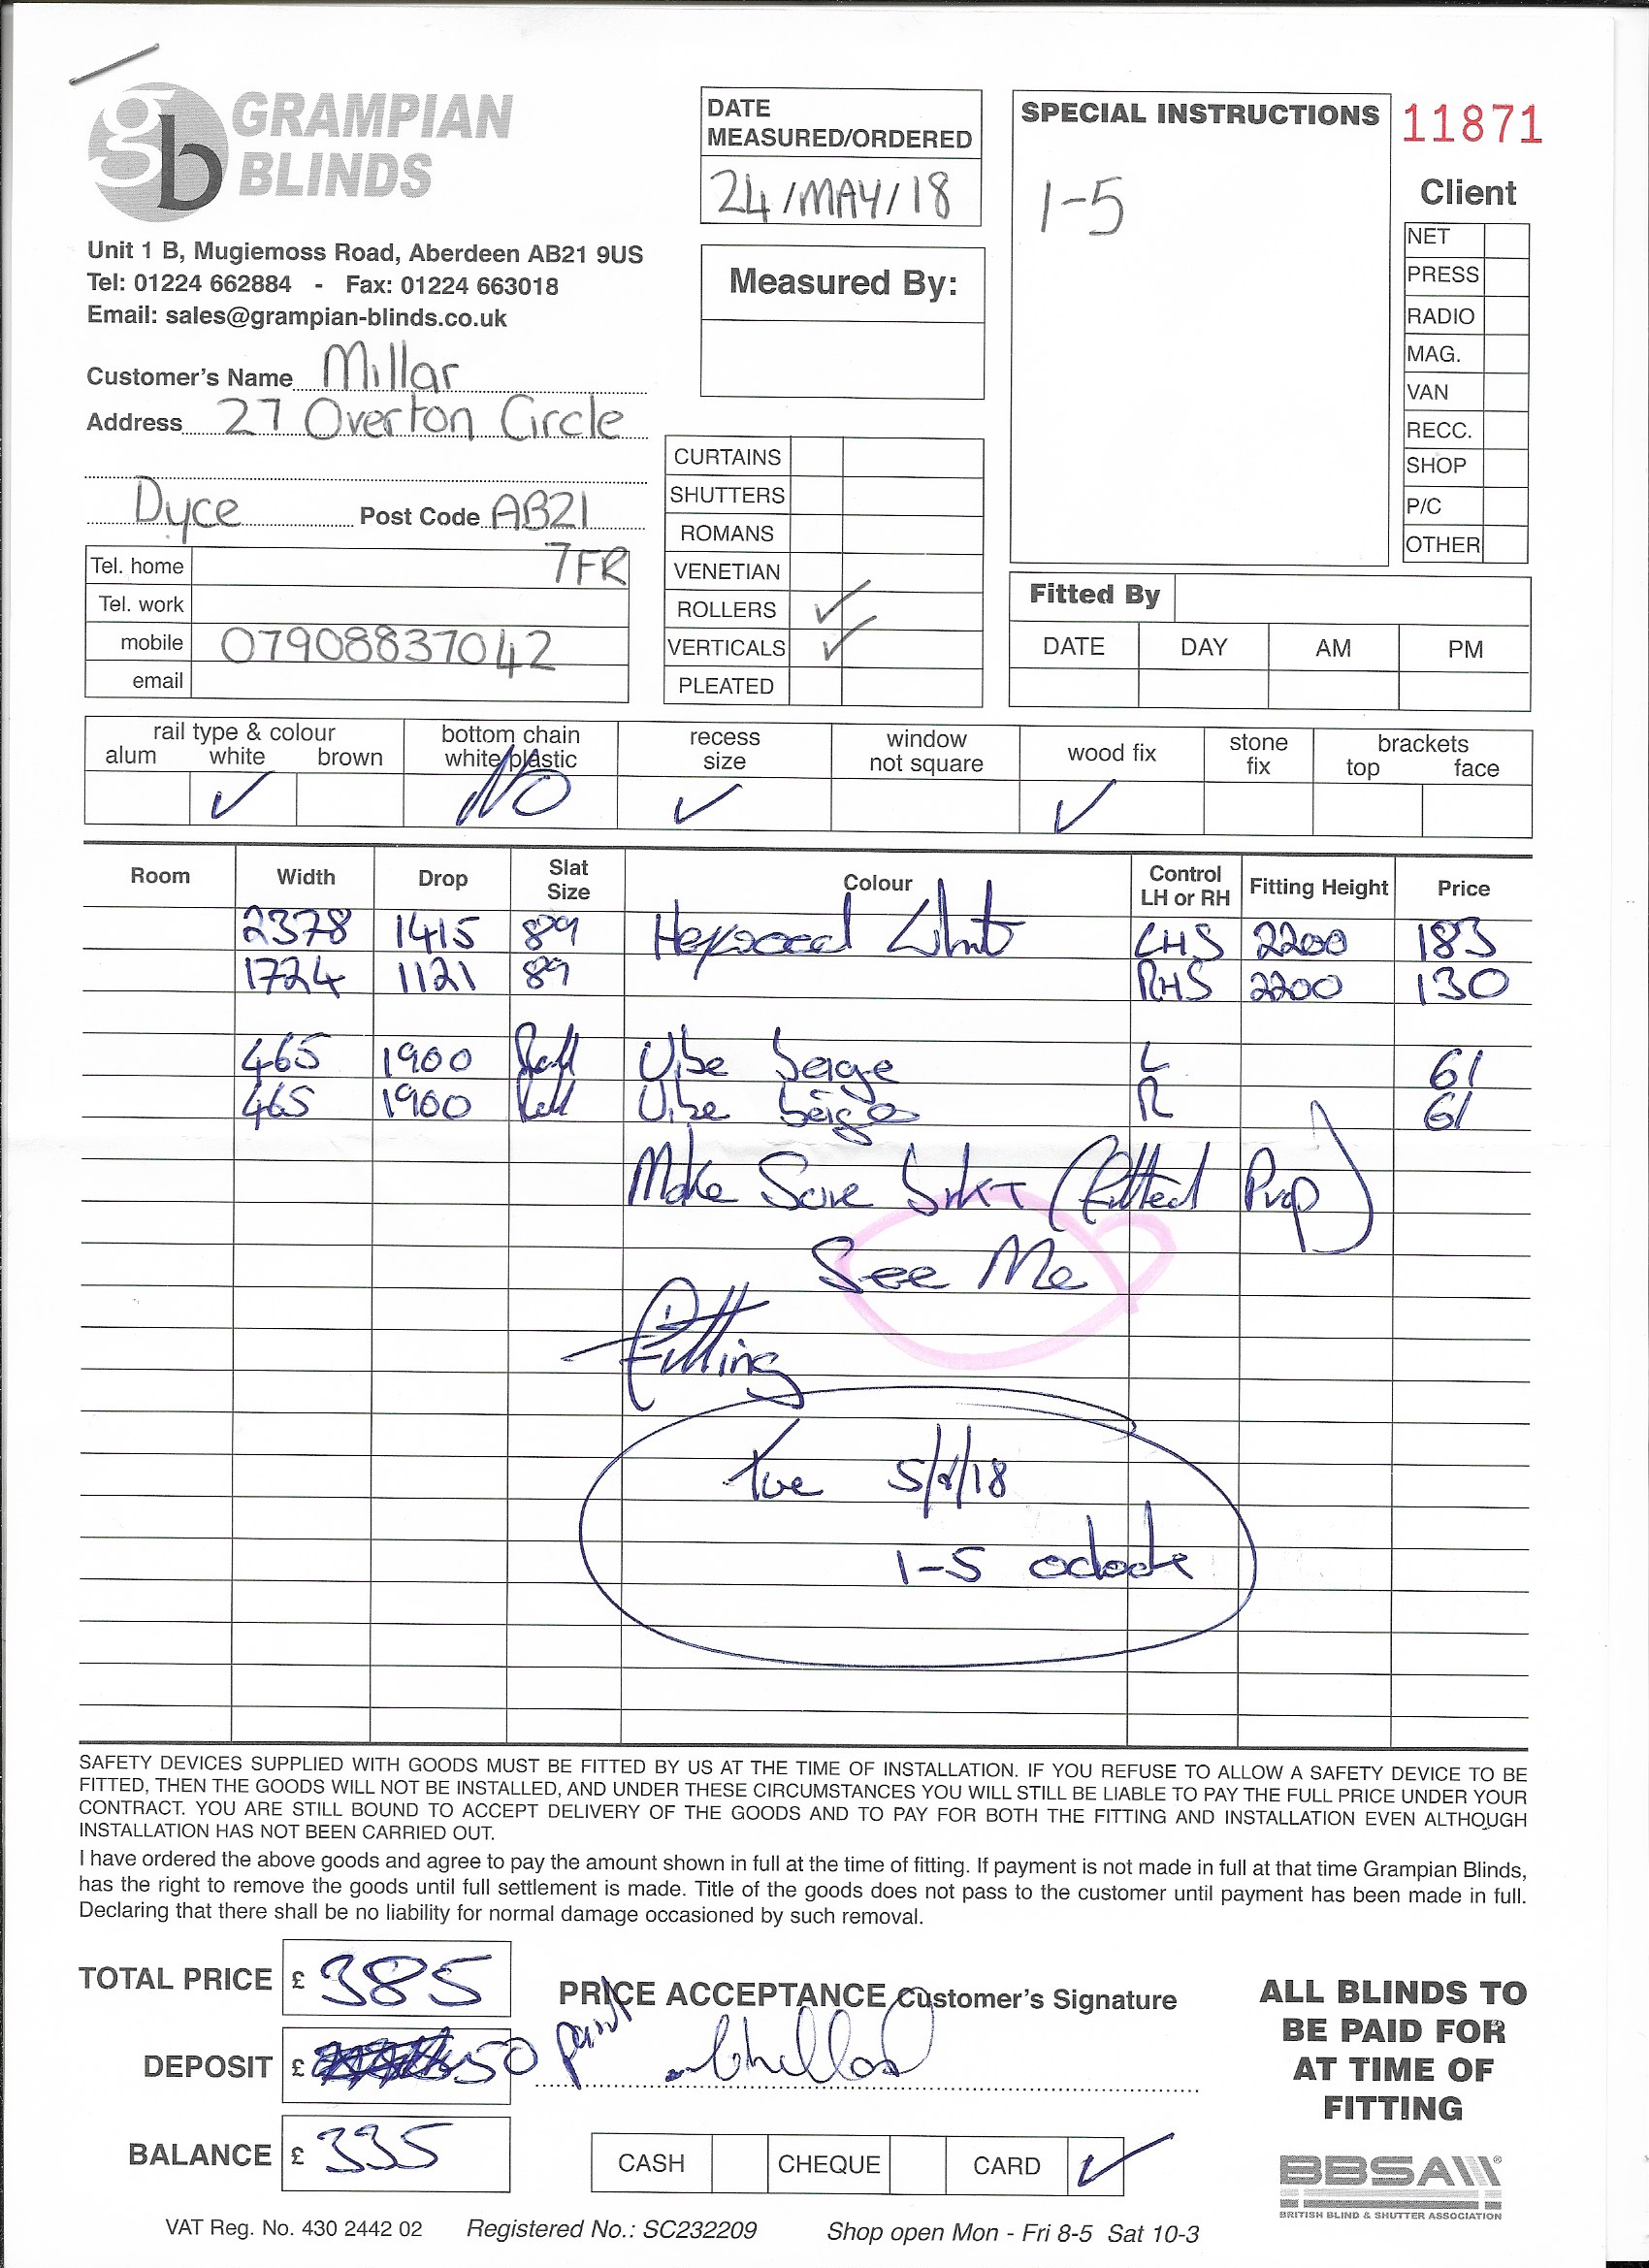 GRAMPIAN
BLINDS
gb
Unit 1 B, Mugiemoss Road, Aberdeen AB21 9US
Tel: 01224 662884 - Fax: 01224 663018
Email: sales@grampian-blinds.co.uk
Customer's Name Millar
Address 27 Overton Circle
Dyce Post Code AB21
7FR
Tel. home
Tel. work
mobile 07908837042
email
DATE
MEASURED/ORDERED
24/MAY/18
Measured By:
CURTAINS
SHUTTERS
ROMANS
VENETIAN
ROLLERS ✓
VERTICALS ✓
PLEATED
SPECIAL INSTRUCTIONS
1-5
11871
Client
NET
PRESS
RADIO
MAG.
VAN
RECC.
SHOP
P/C
OTHER
Fitted By
DATE DAY AM PM
rail type & colour bottom chain recess window wood fix stone brackets
alum white brown white/plastic size not square fix top face
✓ NO ✓ ✓
Room Width Drop Slat Size Colour Control LH or RH Fitting Height Price
2378 1415 89 White LHS 2200 183
1724 1121 89 RHS 2200 130
465 1900 Roll Vibe beige L 61
465 1900 Roll Vibe beige R 61
Make Sure (Fitted Prop)
See Me
Fitting
Tue 5/6/18
1-5 oclock
SAFETY DEVICES SUPPLIED WITH GOODS MUST BE FITTED BY US AT THE TIME OF INSTALLATION. IF YOU REFUSE TO ALLOW A SAFETY DEVICE TO BE
FITTED, THEN THE GOODS WILL NOT BE INSTALLED, AND UNDER THESE CIRCUMSTANCES YOU WILL STILL BE LIABLE TO PAY THE FULL PRICE UNDER YOUR
CONTRACT. YOU ARE STILL BOUND TO ACCEPT DELIVERY OF THE GOODS AND TO PAY FOR BOTH THE FITTING AND INSTALLATION EVEN ALTHOUGH
INSTALLATION HAS NOT BEEN CARRIED OUT.
I have ordered the above goods and agree to pay the amount shown in full at the time of fitting. If payment is not made in full at that time Grampian Blinds,
has the right to remove the goods until full settlement is made. Title of the goods does not pass to the customer until payment has been made in full.
Declaring that there shall be no liability for normal damage occasioned by such removal.
TOTAL PRICE £ 385
PRICE ACCEPTANCE Customer's Signature
DEPOSIT £ 50 paid
BALANCE £ 335
CASH CHEQUE CARD ✓
ALL BLINDS TO
BE PAID FOR
AT TIME OF
FITTING
BBSA
BRITISH BLIND & SHUTTER ASSOCIATION
VAT Reg. No. 430 2442 02 Registered No.: SC232209 Shop open Mon - Fri 8-5 Sat 10-3